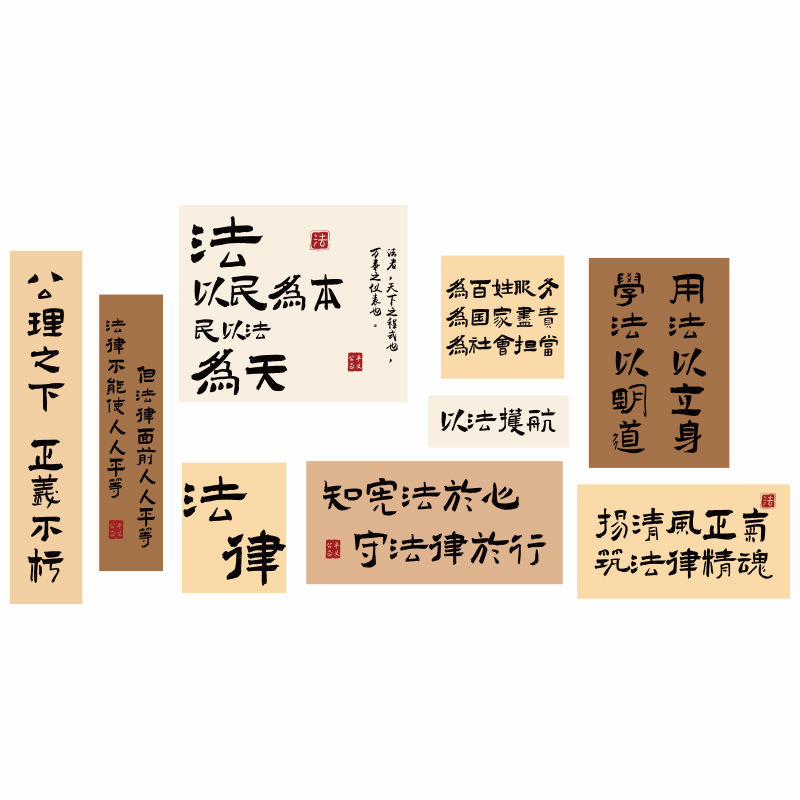 公理之下 正義不朽
法律不能使人人平等
但法律面前人人平等
公平
正义
法
以民為本
民以法
為天
法
法者，天下之程式也，
万事之仪表也。
公平
正义
為百姓服务
為国家盡責
為社會担當
以法擭航
用法以立身
學法以明道
法
律
知宪法於心
守法律於行
公平
正义
揚清風正氣
筑法律精魂
法